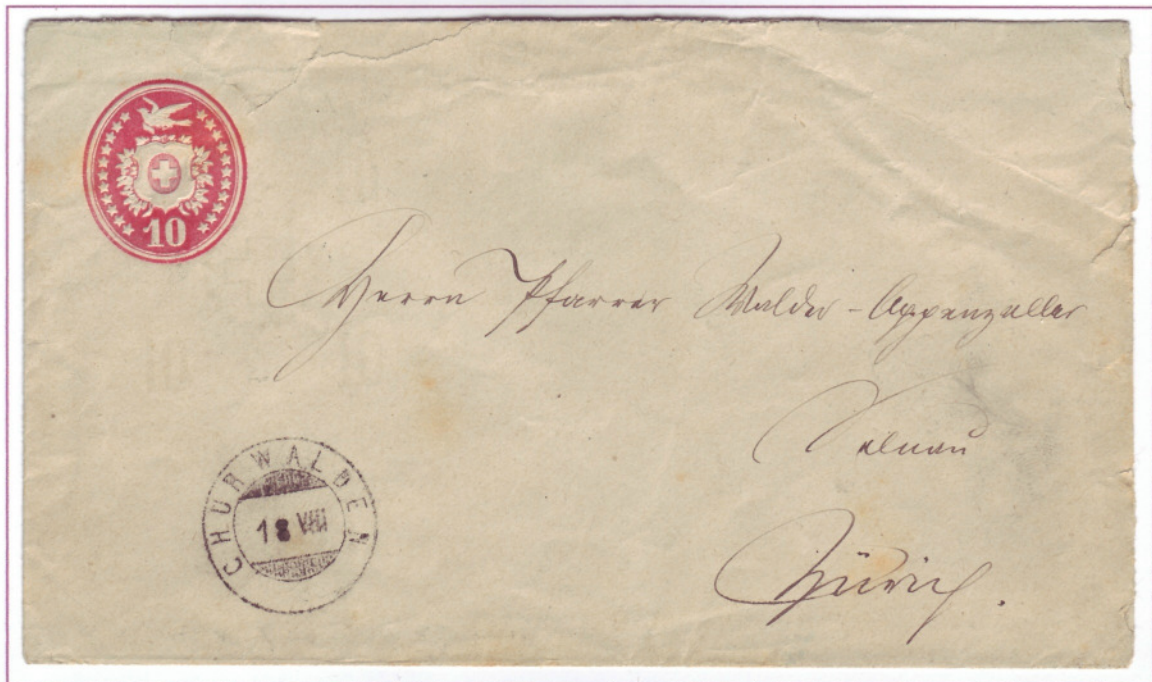 10
Herrn Pfarrer Walder-Appenzeller
Selnau
Zürich.
CHURWALDEN
18 VIII